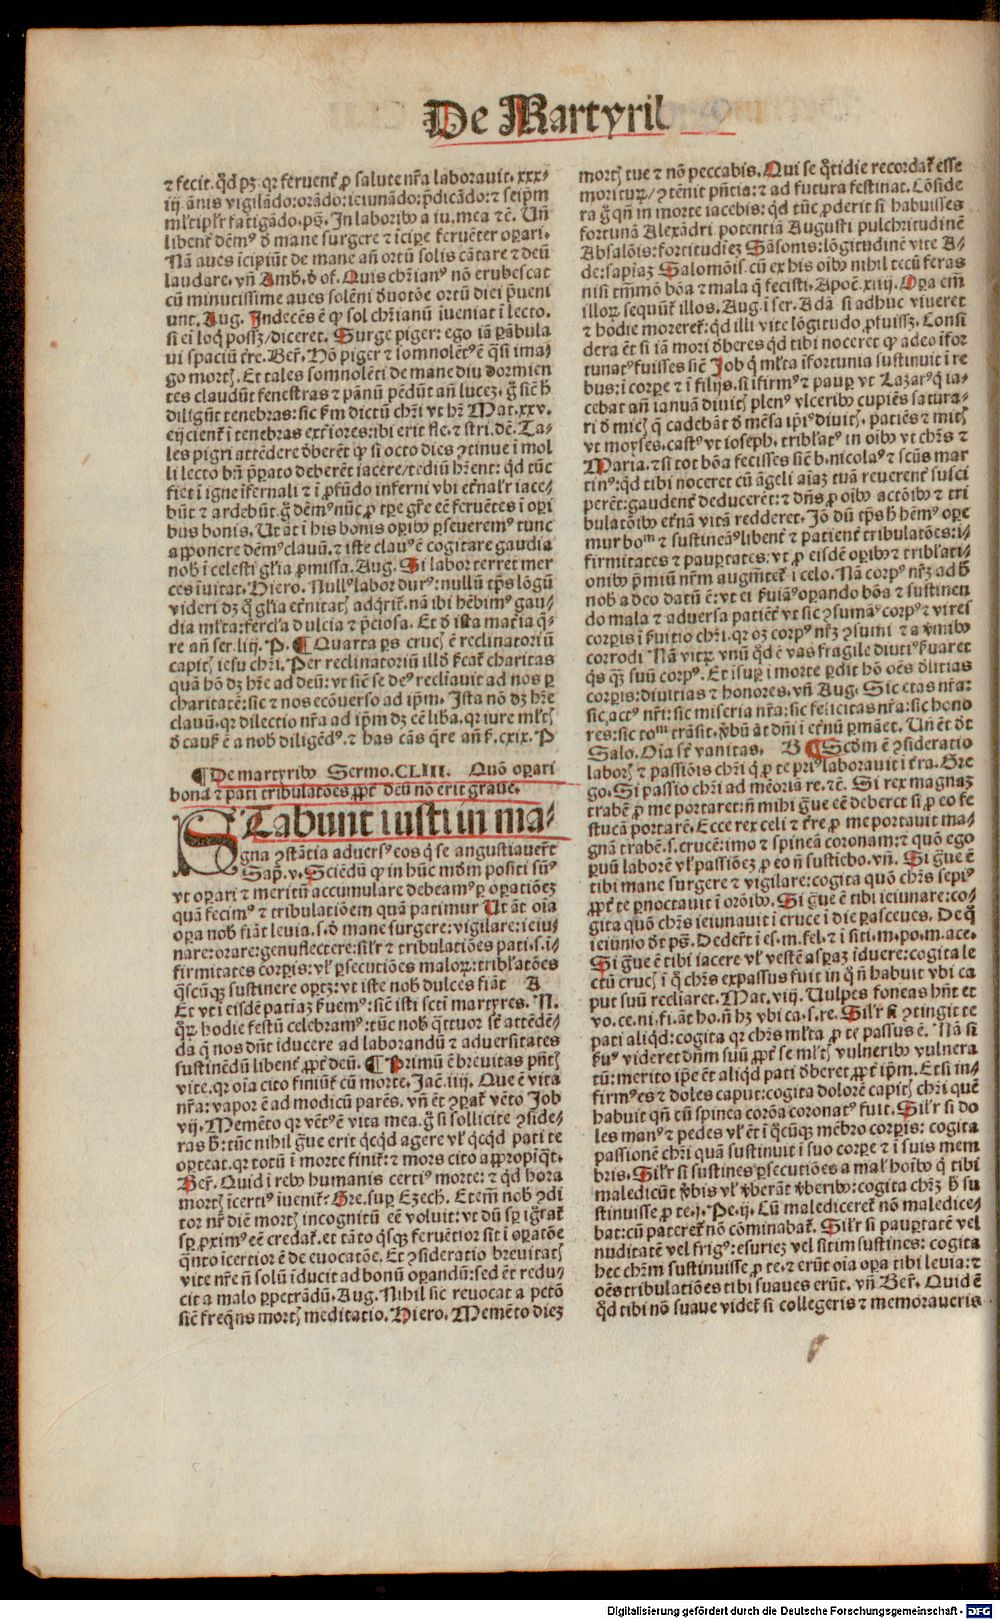 De Martyrib
⁊ fecit. q̄d pꝫ qꝛ feruent̄ ꝓ salute nr̄a laborauit. xxx-
iij ānis vigilādo: orādo: ieiunādo: p̄dicādo: ⁊ seip̄m
ml̄tipl'r fatigādo. pꝰ. In laboribꝰ a iu. mea ⁊c̄. Uñ
libent̄ dēmꝰ d̄ mane surgere ⁊ īcipe feruēter oꝑari.
Nā aues īcipiūt de mane añ ortū solis cātare ⁊ deū
laudare. vñ Amb. d̄ of. Quis chr̄ianꝰ nō erubescat
cū minutissime aues solēni d̄uotōe ortū diei p̄ueni
unt. Aug. Indecēs ē ꝙ sol chr̄ianū iueniat ī lecto.
si ei loq̄ possꝫ/diceret. Surge piger: ego iā ꝑābula
ui spaciū t̄re. Ber̄. Hō piger ⁊ somnolētꝰ ē q̄si ima-
go mortꝭ. Et tales somnolēti de mane diu dormien
tes claudūt fenestras ⁊ pānū pēdūt añ luceꝫ. ḡ siē h̄
diligūt tenebras: sic k̄m dictū chr̄i vt hr̄ Mat. xxv.
eijcient̄ ī tenebras ext̄iores: ibi erit fle. ⁊ stri. dē. Ta-
les pigri attēdere d̄beret̄ ꝙ si octo dies ꝯtinue ī mol
li lecto bn̄ p̄ꝑato deberēt iacere/tediū hr̄ent: q̄d tūc
fiet ī igne īfernali ⁊ ī ꝓfūdo inferni vbi et̄nal'r iace-
būt ⁊ ardebūt. ḡ dēmꝰ nūc ꝓ tꝑe gr̄e eē feruētes ī oꝑi
bus bonis. Ut āt ī his bonis oꝑibꝰ ꝑseueremꝰ tunc
apponere dēmꝰ clauū. ⁊ iste clauꝰ ē cogitare gaudia
nob̄ ī celesti gl'ia ꝓmissa. Aug. Si labor terret mer
ces īuitat. Hiero. Nullꝰ labor durꝰ: nullū tp̄s lōgū
videri dꝫ q̄ gl'ia et̄nitatꝭ adq̄rit̄. nā ibi hēbimꝰ gau-
dia ml̄ta: fercl'a dulcia ⁊ p̄ciosa. Et d̄ ista mat̄ia q̄-
re añ ser. liij. P. ¶ Quarta ꝑs crucꝭ ē reclinatoriū
capitꝭ iesu chr̄i. Per reclinatoriū illō k̄cat̄ charitas
quā hō dꝫ hr̄e ad deū: vt siē se deꝰ recliauit ad nos ꝑ
charitatē: sic ⁊ nos ecōuerso ad ip̄m. Ista nō dꝫ hr̄e
clauū. qꝛ dilectio nr̄a ad ip̄m dꝫ eē liba. qꝛ iure ml̄tꝭ
d̄ caus̄ ē a nob̄ diligēdꝰ. ⁊ has cās q̄re añ k̄. cxix. P
¶ De martyribꝰ Sermo. CLIII. Quō oꝑari
bona ⁊ pati tribulatōes ꝓpt̄ deū nō erit graue.
STabunt iusti in ma-
gna ꝯstātia aduersꝰ eos q̄ se angustiauer̄t
Sap̄. v. Sciēdū ꝙ in hūc mōm positi sumꝰ
vt oꝑari ⁊ meritū accumulare debeamꝰ ꝑ oꝑatiōeꝫ
quā fecimꝰ ⁊ tribulatiōem quā patimur Ut āt oīa
oꝑa nob̄ fiāt leuia. s. d̄ mane surgere: vigilare: ieiu-
nare: orare: genuflectere: sil'r ⁊ tribulatiōes pati. s. i-
firmitates corꝑis: vl' ꝑsecutiōes maloꝝ: tribl'atōes
q̄scūqꝫ sustinere oꝑtꝫ: vt iste nob̄ dulces fiāt A
Et vt i eisdē patiaꝫ k̄uemꝰ: siē isti sctī martyres. N.
q̄ꝝ hodie festū celebramꝰ: tūc nob̄ q̄ttuor s̄t attēdē-
da q̄ nos dn̄t iducere ad laborandū ⁊ aduersitates
sustinēdū libent̄ ꝓpt̄ deū. ¶ Primū ē breuitas pn̄tꝭ
vite. qꝛ oīa cito finiūt̄ cū morte. Jac̄. iiij. Que ē vita
nr̄a: vapor ē ad modicū parēs. vñ ēt ꝯꝑat̄ vēto Job
vij. Memēto qꝛ vētꝰ ē vita mea. ḡ si sollicite ꝯside-
ras h̄: tūc nihil ḡue erit q̄cq̄d agere vl' q̄cq̄d pati te
oꝑteat. qꝛ totū ī morte finit̄: ⁊ mors cito appropīq̄t.
Ber̄. Quid ī rebꝰ humanis certiꝰ morte: ⁊ q̄d hora
mortꝭ īcertiꝰ iuenit̄. Gre. suꝑ Ezech. Etem̄ nob̄ ꝯdi
tor nr̄ diē mortꝭ incognitū eē voluit: vt dū sꝑ ig̃rat̄
sꝑ ꝓximꝰ eē credat̄. et tāto q̄sqꝫ feruētior sit ī oꝑatōe
q̄nto īcertior ē de euocatōe. Et ꝯsideratio breuitatꝭ
vite nr̄e ñ solū īducit ad bonū oꝑandū: sed ēt redu-
cit a malo ꝑpetrādū. Aug. Nihil sic reuocat a pctō
siē freq̄ns mortꝭ meditatio. Hiero. Memēto dieꝫ
mortꝭ tue ⁊ nō peccabis. Qui se q̄tidie recordat̄ esse
morituꝝ/ꝯtēnit pn̄tia: ⁊ ad futura festinat. Cōside
ra ḡ qñ in morte iacebis: q̄d tūc ꝓderit si habuisses
fortunā Alexādri potentiā Augusti pulchritudinē
Absalōis: fortitudieꝫ Sāsonis: lōgitudinē vite A-
de: sapiaꝫ Salomōis. cū ex his oībꝰ nihil tecū feras
nisi tm̄mō bōa ⁊ mala q̄ fecisti. Apoc̄. xiiij. Oꝑa em̄
illoꝝ sequūt̄ illos. Aug. ī ser. Adā si adhuc viueret
⁊ hodie moreret̄: q̄d illi vite lōgitudo ꝓfuissꝫ. Consi
dera ēt si iā mori d̄beres q̄d tibi noceret ꝙ adeo ifor
tunatꝰ fuisses siē Job q̄ ml̄ta ifortunia sustinuit i re
bus: ī corꝑe ⁊ ī filijs. si ifirmꝰ ⁊ pauꝑ vt Lazarꝰ q̄ ia-
cebat añ ianuā diuitꝭ plenꝰ vlceribꝰ cupiēs satura-
ri d̄ micꝭ q̄ cadebāt d̄ mēsa ip̄iꝰ diuitꝭ. patiēs ⁊ mitꝭ
vt moyses. castꝰ vt ioseph. tribl'atꝰ in oībꝰ vt chr̄s ⁊
Maria. ⁊ si tot bōa fecisses siē b. nicolaꝰ ⁊ sc̄us mar
tinꝰ: q̄d tibi noceret cū āgeli aīaꝫ tuā reuerent̄ susci
perēt: gaudent̄ deducerēt: ⁊ dn̄s ꝓ oībꝰ actōībꝰ ⁊ tri
bulatōibꝰ et̄nā vitā redderet. Jō dū tp̄s h̄ hēmꝰ oꝑe
mur boᵐ ⁊ sustineāꝰ libent̄ ⁊ patient̄ tribulatōes: i-
firmitates ⁊ pauꝑtates: vt ꝓ eisdē oꝑibꝰ ⁊ tribl'ati-
onibꝰ p̄miū nr̄m augmētet̄ ī celo. Nā corpꝰ nr̄ꝫ ad h̄
nob̄ a deo datū ē: vt ei k̄uiāꝰ oꝑando bōa ⁊ sustinen
do mala ⁊ aduersa patient̄ vt sic ꝯsumāꝰ corpꝰ ⁊ vires
corꝑis ī k̄uitio chr̄i. qꝛ oꝫ corpꝰ nr̄ꝫ ꝯsumi ⁊ a v̄mibꝰ
corrodi Nā vitꝝ vnū q̄d ē vas fragile diutiꝰ k̄uaret
q̄s qꝫ suū corpꝰ. Et isuꝑ ī morte ꝑdit hō oēs d̄litias
corꝑis: diuitias ⁊ honores. vñ Aug. Sic etas nr̄a:
sic actꝰ nr̄i: sic miseria nr̄a: sic felicitas nr̄a: sic hono
res: sic toᵐ trāsit. v̄bū āt dn̄i ī et̄nū ꝑmāet. Un̄ ēt d̄t
Salo. Oīa s̄t vanitas. B ¶ Scd̄m ē ꝯsideratio
laborꝭ ⁊ passiōis chr̄i q̄ ꝑ te priꝰ laborauit ī t̄ra. Gre
go. Si passio chr̄i ad mēoriā re. ⁊c̄. Si rex magnaꝫ
trabē ꝓ me portaret: ñ mihi ḡue eē deberet si ꝓ eo fe
stucā portarē. Ecce rex celi ⁊ t̄re ꝓ me portauit ma-
gnā trabē. s. crucē: imo ⁊ spineā coronam: ⁊ quō ego
ꝑuū laborē vl' passiōeꝫ ꝓ eo ñ sustiebo. vñ. Si ḡue ē
tibi mane surgere ⁊ vigilare: cogita quō chr̄s sepiꝰ
ꝓpt̄ te ꝑnoctauit ī orōibꝰ. Si ḡue ē tibi ieiunare: co-
gita quō chr̄s ieiunauit ī cruce ī die parasceues. De q̄
ieiunio d̄t pꝰ. Deder̄t ī es. m. fel. ⁊ ī siti. m. po. m. ace.
Si ḡue ē tibi iacere vl' vestē asꝑaꝫ īduere: cogita le
ctū crucꝭ ī q̄ chr̄s expassus fuit in q̄ ñ habuit vbi ca
put suū recliaret. Mat. viij. Uulpes foueas hn̄t et
vo. ce. ni. fi. āt ho. ñ hꝫ vbi ca. s. re. Sil'r si ꝯtingit te
pati aliq̄d: cogita qꝛ chr̄s ml̄ta ꝓ te passus ē. Nā si
k̄uꝰ videret dn̄m suū ꝓpt̄ se ml̄tꝭ vulneribꝰ vulnera
tū: merito ip̄e ēt aliq̄d pati d̄beret ꝓpt̄ ip̄m. Et si in-
firmꝰ es ⁊ doles caput: cogita dolorē capitꝭ chr̄i quē
habuit qñ cū spinea corōa coronatꝰ fuit. Sil'r si do
les manꝰ ⁊ pedes vl' ēt ī q̄cūqꝫ mēbro corꝑis: cogita
passionē chr̄i quā sustinuit ī suo corꝑe ⁊ ī suis mem
bris. Sil'r si sustines ꝑsecutiōes a mal' hoībꝰ q̄ tibi
maledicūt v̄bis vl' v̄berāt v̄beribꝰ: cogita chr̄ꝫ h̄ su
stinuisse ꝓ te. j. Pe. ij. Cū malediceret̄ nō maledice-
bat: cū pateret̄ nō cōminabat̄. Sil'r si pauꝑtatē vel
nuditatē vel frigꝰ: esurieꝫ vel sitim sustines: cogita
hec chr̄m sustinuisse ꝓ te. ⁊ erūt oīa oꝑa tibi leuia: ⁊
oēs tribulatiōes tibi suaues erūt. vñ Ber̄. Quid ē
q̄d tibi nō suaue videt̄ si collegeris ⁊ memoraueris
Digitalisierung gefördert durch die Deutsche Forschungsgemeinschaft - DFG